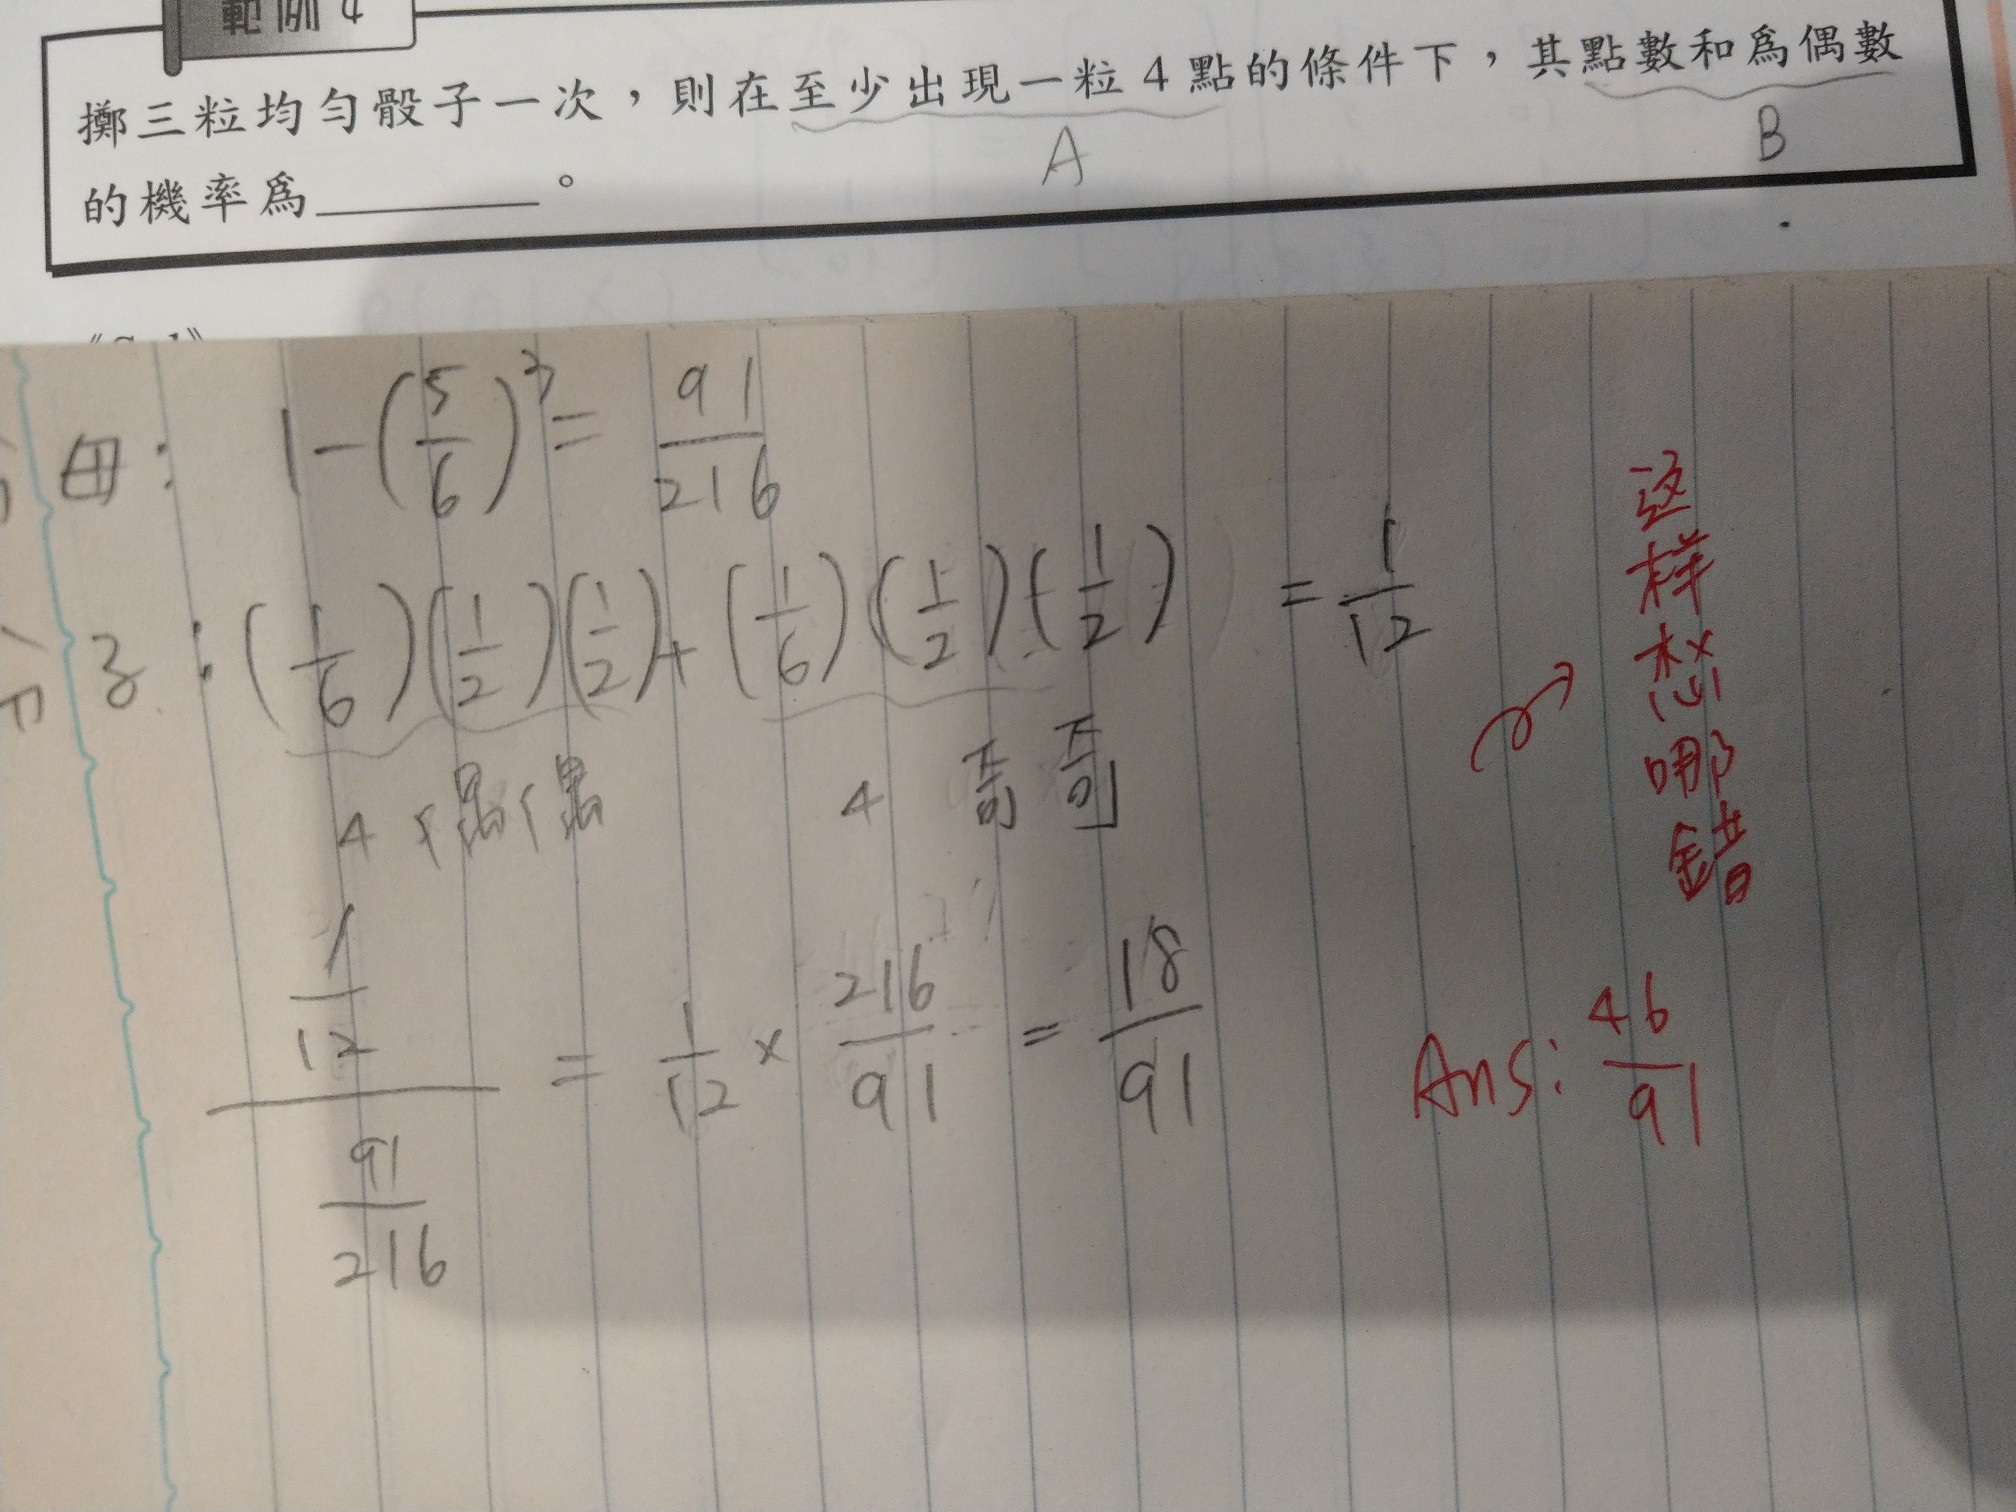 範例 4
擲三粒均勻骰子一次，則在至少出現一粒 4 點的條件下，其點數和為偶數
A
B
的機率為________。
分母： 1-(5/6)^3 = 91/216
分子：(1/6)(1/2)(1/2)+(1/6)(1/2)(1/2) = 1/12
4 偶 偶
4 奇 奇
(1/12)/(91/216) = 1/12 × 216/91 = 18/91
这样想哪錯
Ans: 46/91